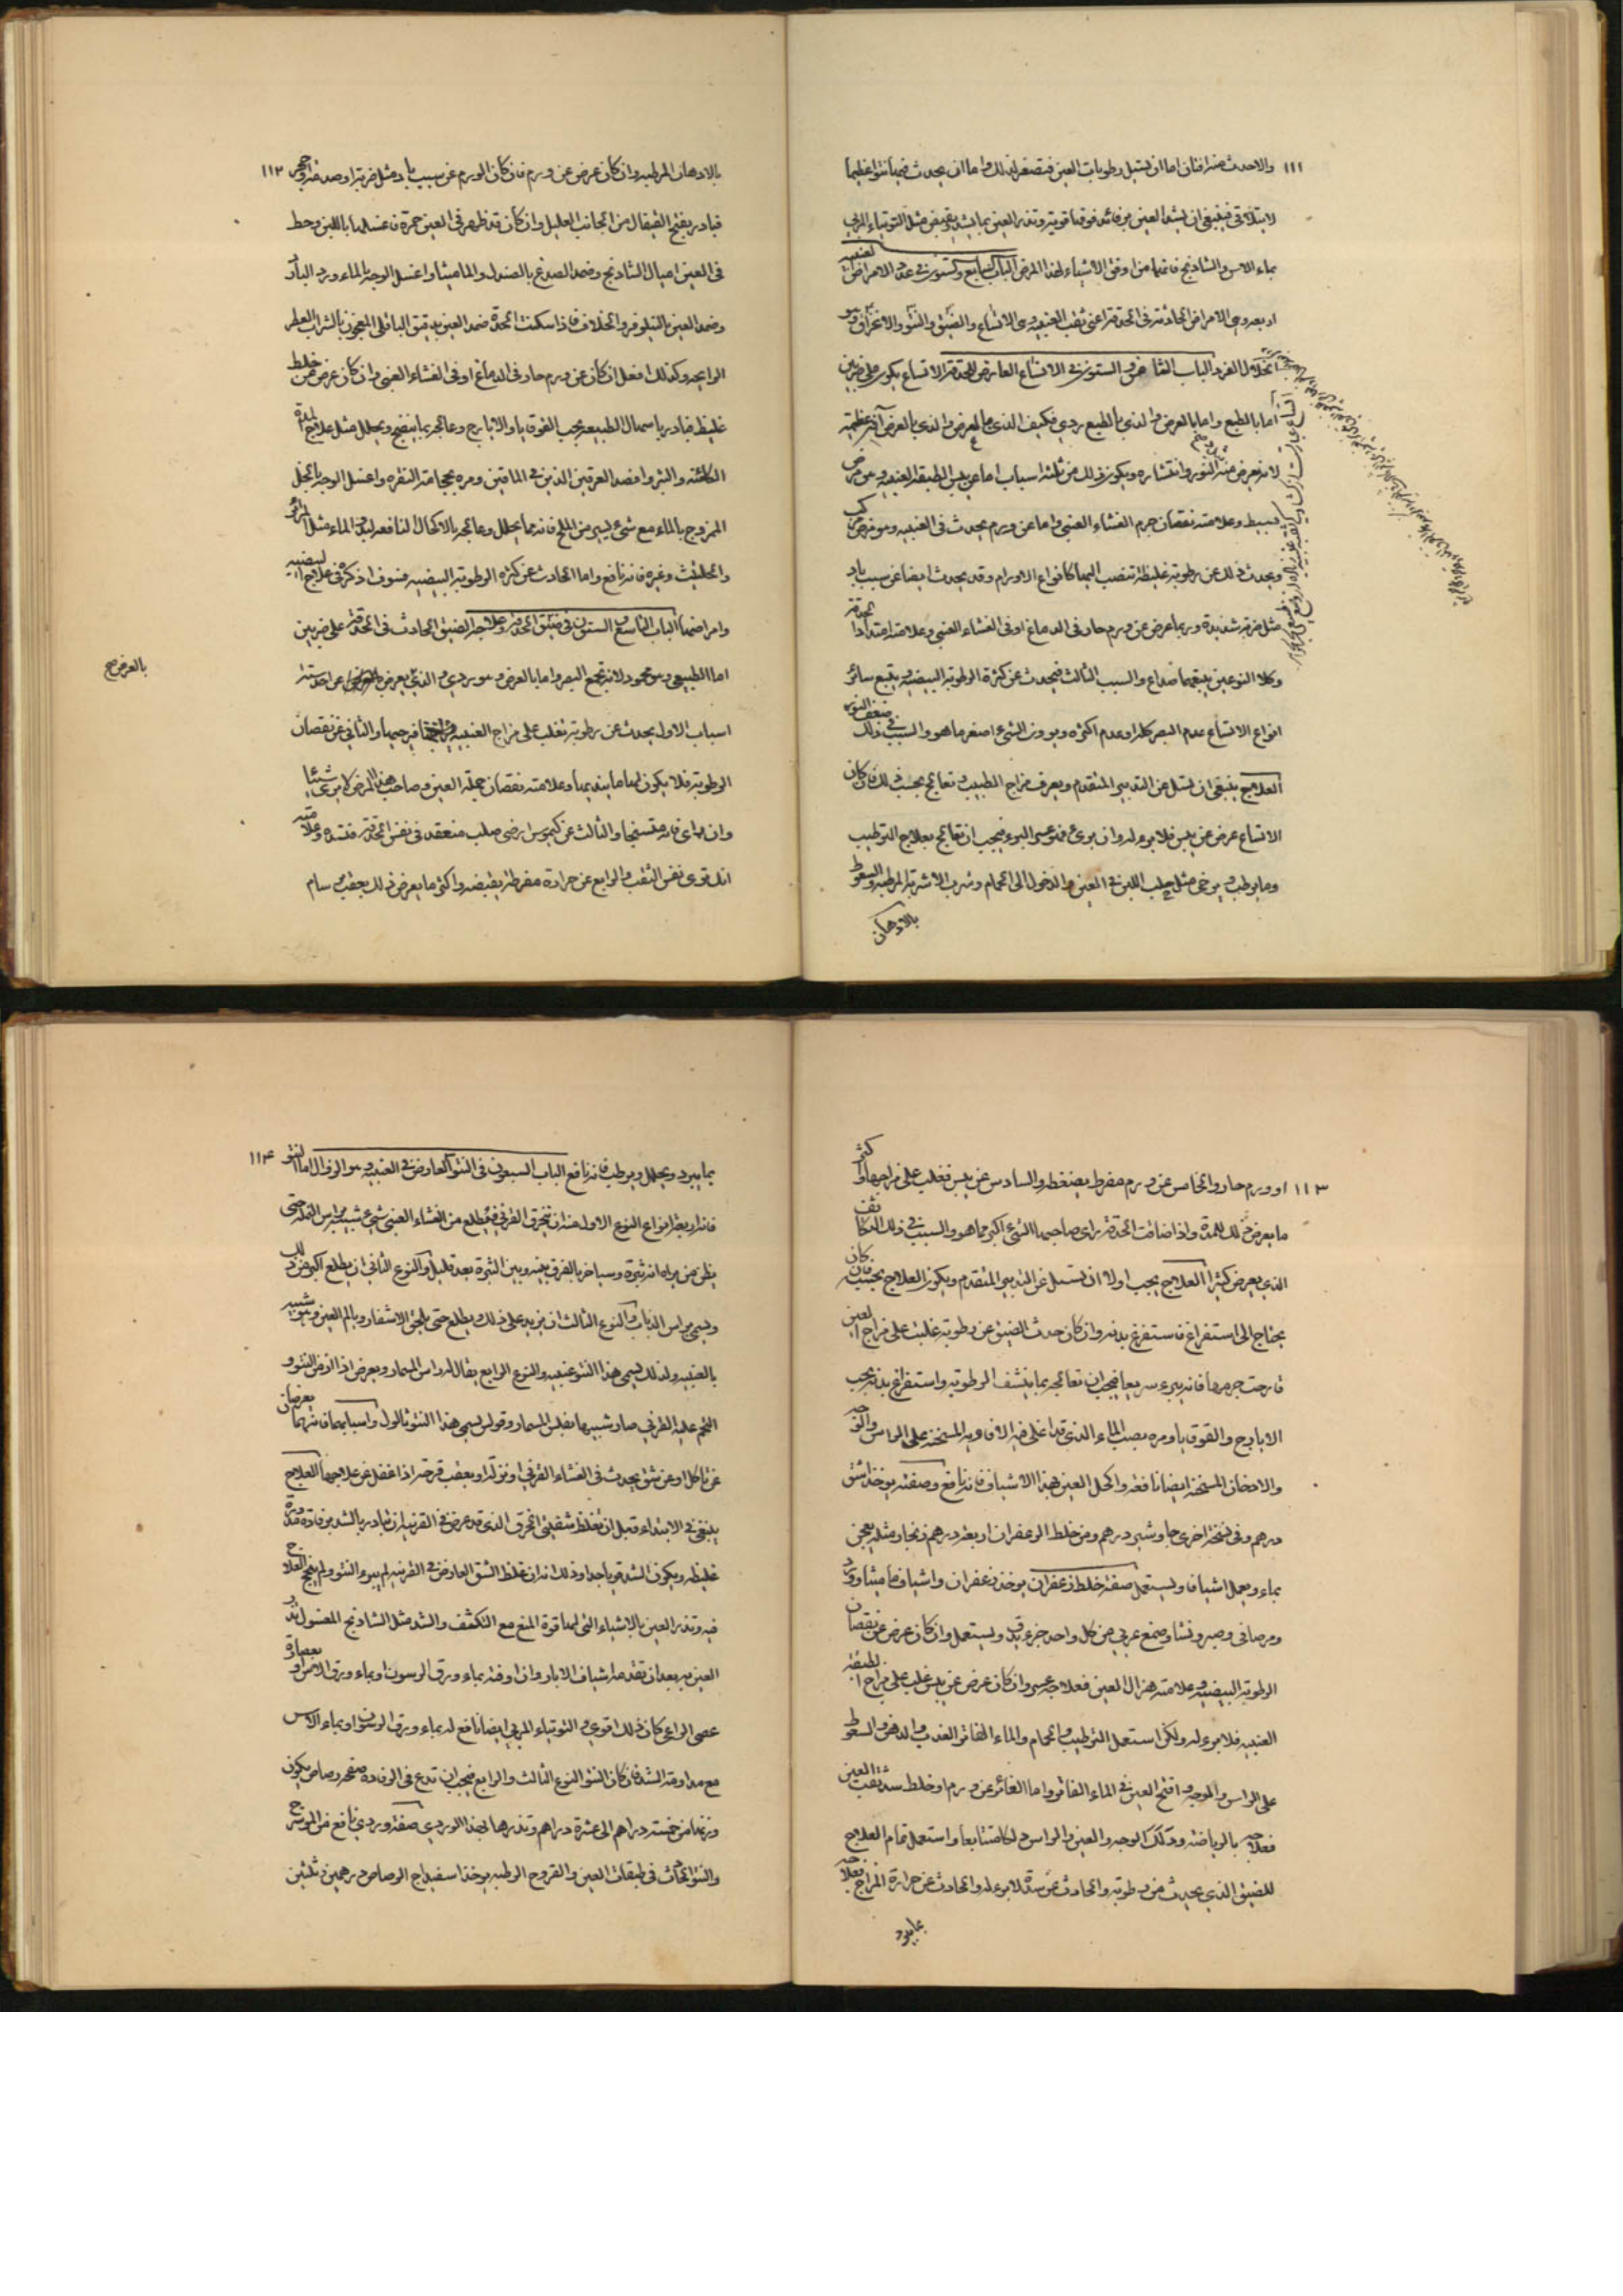 ١١١
والاحدث منه افتان اما ان تسيل رطوبات العين فتصغر لذلك واما ان يحدث فيها نتوا عظيما
لا يتلافى فينبغى ان يشد العين برفائد فوقها قوية وتذر العين بما يشد ويقبض مثل التوتياء المربى
بماء الاس والشاذنج فانهما من اوفق الاشياء لهذا المرض الباب السابع والستون فى عدد الامراض العنبيه
اربعه وهى الامراض الحادثة فى الحدقة اعنى ثقب العنبيه وهى الاتساع والضيق والنتو والانخراق وهو
انحلال الفرد الباب الثامن والستون فى الاتساع العارض للحدقة الاتساع يكون على ضربين
اما بالطبع واما بالعرض والذى بالطبع ردى فكيف الذى بالعرض والذى بالعرض
لانه يعرض منه النور وانتشاره ويكون ذلك من ثلثه اسباب اما عن يبس الطبقه العنبيه وهو مرض
بسيط وعلامته نقصان جرم الغشاء العنبى واما عن ورم يحدث فى العنبيه وهو مرض مركب
ويحدث ذلك عن رطوبة غليظة تنصب اليها كانواع الاورام وقد يحدث ايضا عن سبب باد
مثل ضربة شديدة وربما عرض عن ورم حار فى الدماغ او فى الغشاء العنبى وعلامته امتداد الحدقة
وكلا النوعين يتبعهما صداع والسبب الثالث فيحدث عن كثرة الرطوبة البيضيه ويتبع سائر
انواع الاتساع عدم البصر كله او عدم اكثره ويرون الشىء اصغر مما هو والسبب فى ذلك ضعف النور
العلاج ينبغى ان تسئل عن التدبير المتقدم ويعرف مزاج الطبيب وتعالج بحسب ذلك فان كان
الاتساع عرض عن يبس فلا برء له وان برئ فهو عسر البرء فيجب ان تعالج بعلاج الترطيب
وما يرطب ويرخى مثل حلب اللبن فى العين والدخول الى الحمام وشرب الاشربة المرطبه والسعوط
بالادهان
١١٢
بالادهان المرطبه وان كان عرض عن ورم فان كان الورم عن سبب باد مثل ضربة او صدمة او حجر
فبادر بفتح القيفال من الجانب العليل وان كان قد ظهر فى العين حمرة فاغسلها باللبن وحط
فى العين اميال الشاذنج وضمد الصدغ بالصندل والماميثا واغسل الوجه بالماء ورد البارد
وضمد العين بالنيلوفر والخلاف فاذا سكنت الحدة ضمد العين بدقيق الباقلى المعجون بالشراب العطر
الرايحه وكذلك افعل ان كان عن ورم حار فى الدماغ او فى الغشاء العنبى وان كان عرض من خلط
غليظ فبادر باسهال الطبيعه بحب القوقايا والايارج وعالجه بما ينضج ويحلل مثل علاج المدة
الكامنة والبثر وافصد العرقين الذين فى الماقين ومره بحجامة النقره واغسل الوجه بالخل
الممزوج بالماء مع شىء يسير من الملح فانه مما يحلل وعالجه بالاكحال النافعه لبدو الماء مثل المرائر
والحلتيت وغيره فانه نافع واما الحادث عن كثرة الرطوبة البيضيه فسوف اذكره فى علاج البيضيه
وامراضها الباب التاسع والستون فى ضيق الحدقه وعلاجه الضيق الحادث فى الحدقة على ضربين
اما الطبيعى وهو محمود لانه يجمع البصر واما بالعرض وهو ردى والذى يعرض بالعرض عن احد ستة
اسباب الاول يحدث عن رطوبة تغلب على مزاج العنبيه فيرخى جرمها والثانى عن نقصان
الرطوبة فلا يكون لها ما يمدها وعلامته نقصان جملة العين وصاحب هذا المرض لا يرى شيئا
وان راى فانه متشنجا والثالث عن كيموس ارضى صلب منعقد فى نفس الحدقة فتسده وعلامته
انك ترى نفس الثقب والرابع عن حرارة مفرطة يقبضه واكثر ما يعرض ذلك بعقب سرسام
بالعرض صح
١١٣
او ورم حار والخامس عن ورم مفرط يضغطه والسادس عن يبس تغلب على مزاجها واكثر
ما يعرض ذلك للهرمة واذا ضاقت الحدقة راى صاحبها الشىء اكبر مما هو والسبب فى ذلك التكاثف
الذى يعرض كثيرا العلاج يجب اولا ان تسئل عن التدبير المتقدم ويكون العلاج بحسبه فان كان
يحتاج الى استفراغ فاستفرغ بدنه وان كان حدث الضيق عن رطوبة غلبت على مزاج العين
فارخت جرمها فانه يبرء سريعا فيجب ان تعالجه بما ينشف الرطوبه واستفراغ بدنه بحب
الايارج والقوقايا ومره بصب الماء الذى قد اغلى فيه الافاويه المسخنه على الراس والوجه
والادهان المسخنة ايضا نافعة واكحل العين بهذا الاشياف فانه نافع وصفته يوخذ اشق
درهم وفى نسخة اخرى جاوشير درهم ومن خلط الزعفران اربعة دراهم زنجار مثله يعجن
بماء ويعمل اشياف ويستعمل صفة خلط زعفران يوخذ زعفران واشياف ماميثا وورد
ومر صافى وصبر ونشا وصمغ عربى من كل واحد جزء يدق ويستعمل وان كان عرض عن نقصان
الرطوبة البيضيه وعلامته هزال العين فعلاجه عسر وان كان عرض عن يبس غلب على مزاج الطبقة
العنبيه فلا برء له ولكن استعمل الترطيب والحمام والماء الفاتر العذب والدهن والسعوط
على الراس والوجه وافتح العين فى الماء الفاتر واما الغائر عن ورم او خلط سد ثقب العين
فعلاجه بالرياضة ودلك الوجه والعين والراس دلكا متتابعا واستعمل تمام العلاج
للضيق الذى يحدث من رطوبة والحادث عن سدة لا برء له والحادث عن حرارة المزاج فعلاجه
بما يبرد
١١٤
بما يبرد ويحلل ويرطب فانه نافع الباب السبعون فى النتو العارض فى العنبيه وهو الزوال اما النتو
فانه اربعة انواع النوع الاول هو ان ينخرق القرنى فيطلع من الغشاء العنبى شىء شبيه براس النملة حتى
يظن من يراه انه بثرة وساخبر بالفرق بينه وبين البثرة بعد قليل والنوع الثانى ان يطلع اكبر من ذلك
ويسمى براس الذباب والنوع الثالث ان يزيد على ذلك ويطلع حتى يلحق الاشفار ويالم العين وهو شبيه
بالعنبيه ولذلك يسمى هذا النتو عنبيه والنوع الرابع يقال له راس المسمار ويعرض اذا ازمن النتو و
التحم عليه القرنى صار شبيها بفلس المسمار وقوم يسمى هذا النتو ثالول واسبابهما فانهما يعرضان
عن تاكل او عن شق يحدث فى الغشاء القرنى او نزلة او بعقب قرحة اذا غفل عن علاجها العلاج
ينبغى فى الابتداء قبل ان تغلظ شفتى الخرق الذى قد عرض فى القرنيه ان تبادر بالشد برفادة مدورة
غليظه ويكون الشد قويا جدا وذلك انه ان غلظ الشق العارض فى القرنيه لم يبرء النتو ولم ينجح العلاج
فيه وتذر العين بالاشياء التى لها قوة المنع مع التكثف والشد مثل الشاذنج المغسول تذر
العين به بعد ان تقدمه اشياف الابار وان اوفته بماء ورق الرسون او بماء ورق الاس او بعصارة
عصى الراعى كان ذلك اقوى والتوتياء المربى ايضا نافع له بماء ورق الرسون او بماء الاس
مع مداومة الشد فان كان النتو النوع الثالث والرابع فيجب ان تدع فى الرفادة صفحة رصاص يكون
وزنها من خمسة دراهم الى عشرة دراهم وتذرها بهذا الوردى صفة وردى نافع من الموسرج
والنتو الحادث فى طبقات العين والقروح الرطبه يوخذ اسفيداج الرصاص درهمين وثلثين